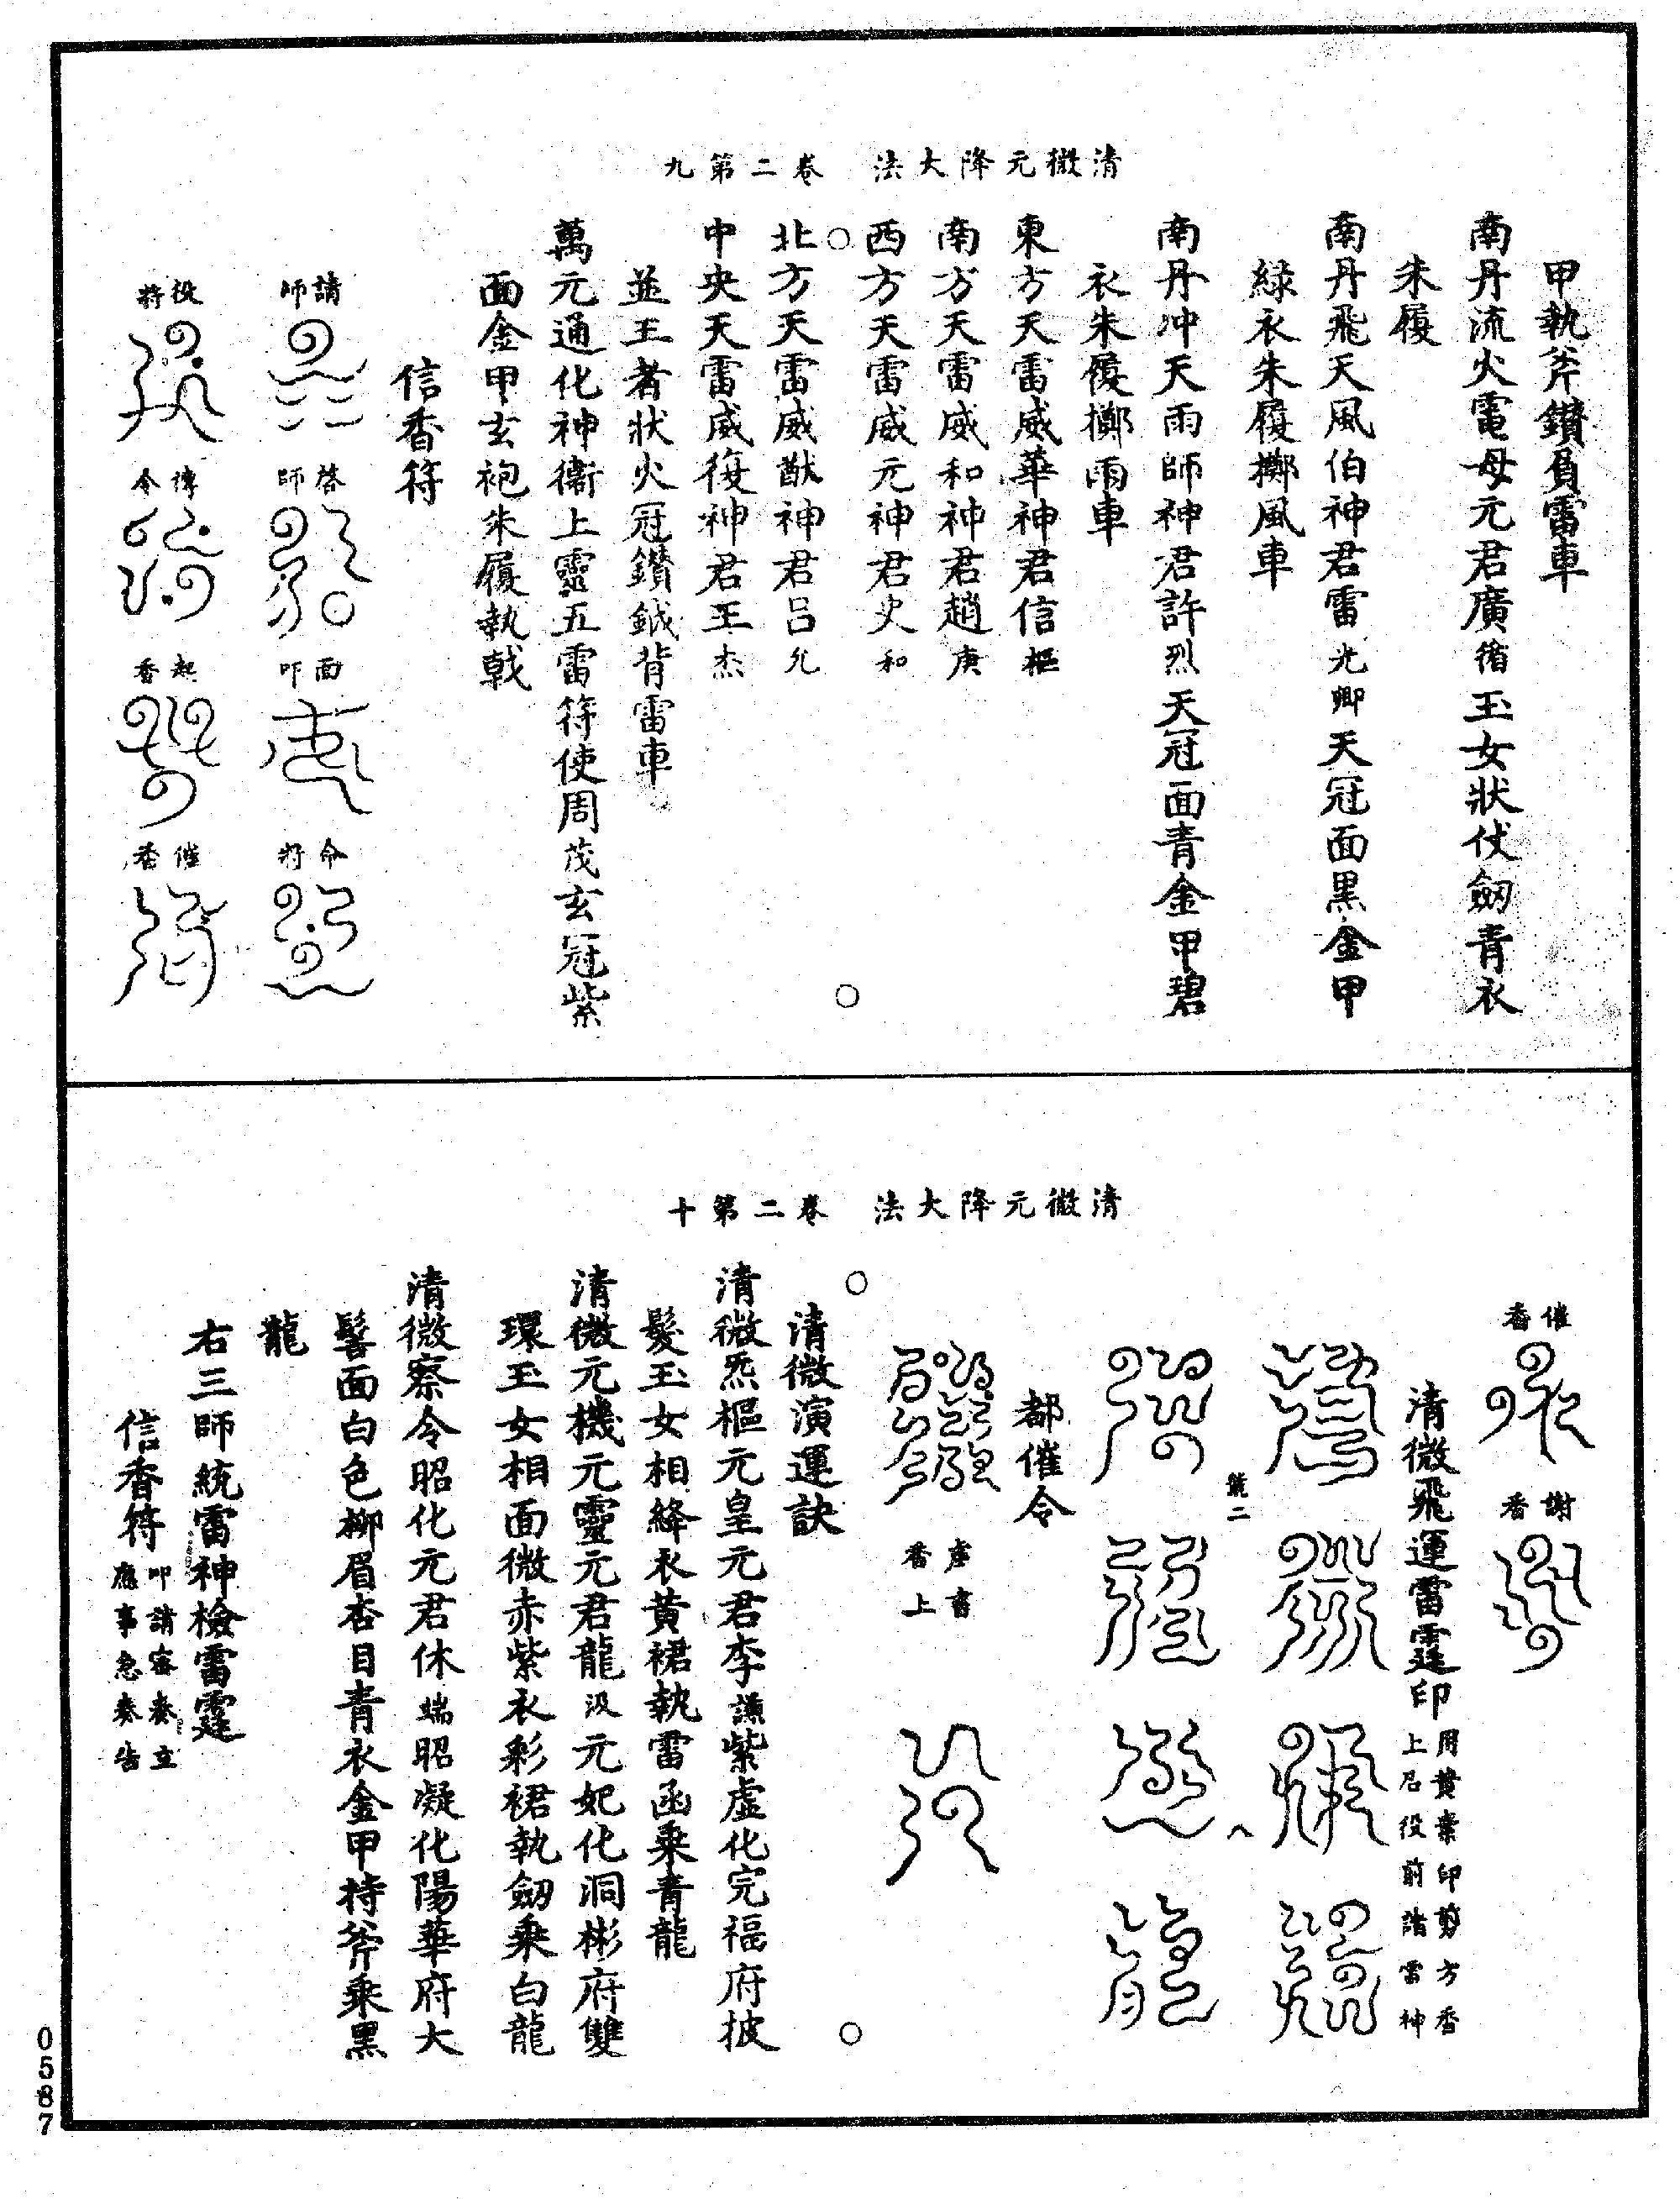 清微元降大法　卷二第九
甲執斧鑽負雷車
南丹流火電母元君廣循玉女狀仗劒青衣
朱履
南丹飛天風伯神君雷光卿天冠面黑金甲
綠衣朱履擲風車
南丹冲天雨師神君許烈天冠面青金甲碧
衣朱履擲雨車
東方天雷威華神君信樞
南方天雷威和神君趙庚
西方天雷威元神君史和
北方天雷威猷神君呂允
中央天雷威復神君王杰
並王者狀火冠鑽鉞背雷車
萬元通化神衞上靈五雷符使周茂玄冠紫
面金甲玄袍朱履執戟
信香符
請師
啓師
面叩
命將
役將
傳令
起香
催香
清微元降大法　卷二第十
催香
謝香
清微飛運雷霆印
用黃棗印剪方香
上召役前諸雷神
第二
八
都催令
虛書
香上
清微演運訣
清微炁樞元皇元君李謙紫虛化完福府披
髮玉女相絳衣黃裙執雷函乘青龍
清微元機元靈元君龍汲元妃化洞彬府雙
環玉女相面微赤紫衣彩裙執劒乘白龍
清微察令昭化元君休端昭凝化陽華府大
髻面白色柳眉杏目青衣金甲持斧乘黑
龍
右三師統雷神檢雷霆
信香符
叩請審奏立
應事急奏告
0587